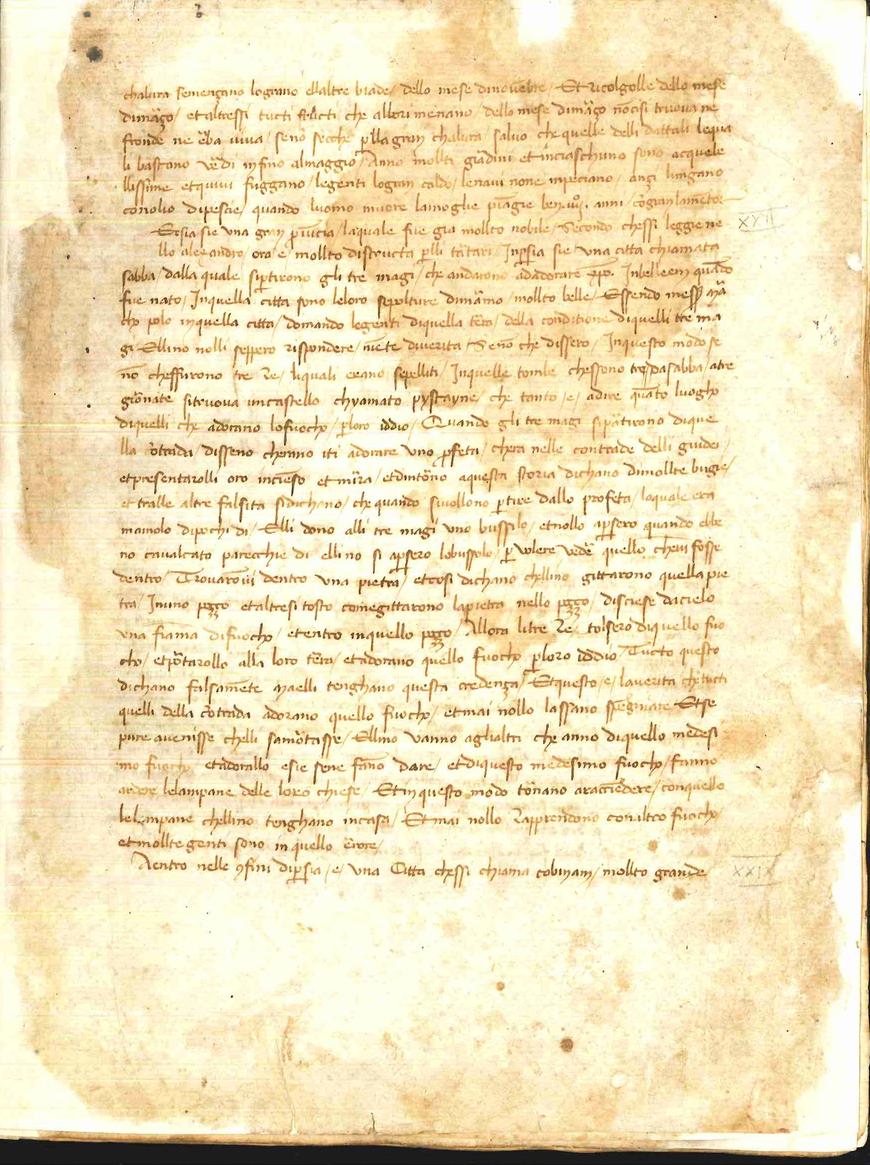 chalura semengano lograno ellaltre biade / dello mese dinovēbre / Et ricolgolle dello mese
dimāço / et altressi tucti fructi che allori menano / dello mese dimāço nōcisi truova ne
fronde ne erba viva / senō secche p lla gran chalura / salvo che quelle delli dattali lequa
li bastano verdi infino almaggio / Anno molti giardini et inciaschuno sono acque
llissime et quivi fuggano / le genti lo gran caldo / lenavi none inpeciano / anzi lungano
conolio di pescie / quando luomo muore lamoglie piāgie ben iiij anni / cōgranlamēto
Persia sie una gran pvincia / laquale fue gia mollto nobile / secondo chessi leggie ne
llo alexandro / ora e mollto distructa p lli tātari / Inpsia sie una citta chiamata
sabba / dalla quale sipartirono gli tre magi / che andarono adadorare xpo Inbelleem quādo
fue nato / Inquella citta sono leloro sepolture dimāmo / mollto belle / Essendo mess mā
cho polo inquella citta / domando legenti diquella tēra / della conditione diquelli tre ma
gi Ellino nolli seppero rispondere / niēte diverita senō che dissero / Inquesto modo se
nō cheffurono tre Re / liquali erano sepelliti / Inquelle tombe chessono tre / dasabba / atre
giōnate sitruova uncastello chyamato pyscayne / che tanto / e / adire quāto luogho
diquelli che adorano lofuocho / p loro iddio / Quando gli tre magi sipātirono dique
lla cōtrada / disseno cherano iti adorare uno pfeta / chera nelle contrade delli giudei /
et presentarolli oro incienso et mirra / et dintōno aquesta storia dichano dimollte bugie /
et tralle altre falsita sidichono / che quando sivollono ptire dallo profeta / laquale era
mamolo dipochi di / Elli dono alli tre magi uno bussilo / et nollo apsero quando ebbe
no cavalcato parecchie di ellino si apsero lobussolo / p volere vedē quello chevi fosse
dentro / Trovarovi dentro una pietra / et cosi dichano chellino gittarono quella pie
tra / Inuno pozzo et altresi tosto comegittarono lapietra nello pozzo / disciese dacielo
una fiama difuocho / et entro inquello pozzo / Allora litre Re / tolsero diquello fuo
cho / et pōtarollo alla loro tēra / et adorano quello fuocho p loro iddio / Tucto questo
dichano falsamēte maelli tenghano questa credenza / Et questo / e / laverita che tucti
quelli della cōtrada adorano quello fuocho / et mai nollo lassano spēgniare Et se
pure avenisse chelli samōtasse / Ellino vanno aglialtri che anno diquello medesi
mo fuocho et adorallo esie sene fano dare / et diquesto medesimo fuocho / fanno
ardere lelampane delle loro chiese / Et inquesto modo tōnano araccīedere / conquello
lelampane chellino tenghano incasa / Et mai nollo Rapprendono conaltro fuocho
et mollte genti sono inquello erore /
Aentro nelle 9fini dipsia / e / una Citta chessi chiama cobinam / mollto grande
XXII
XXIX